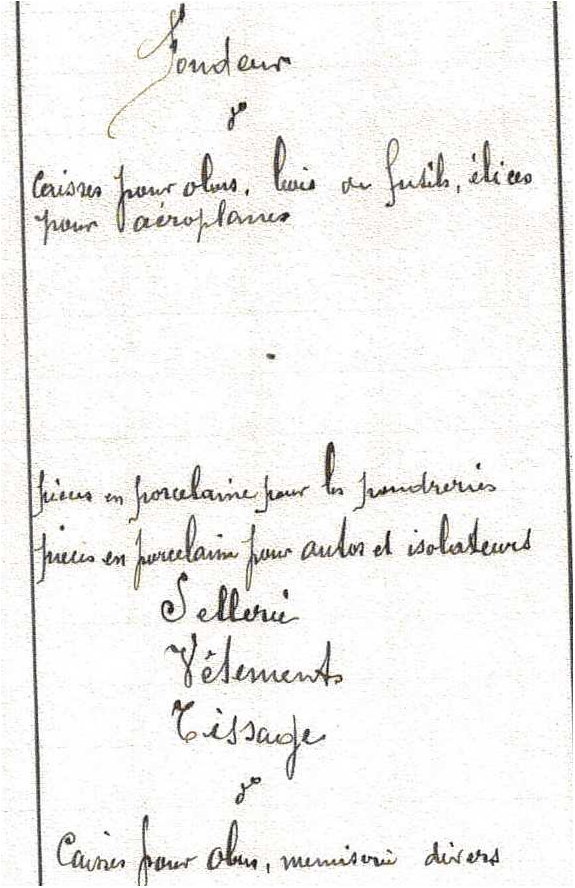 Fondeur
do
Caisses pour obus, bois de fusils, élices
pour aéroplanes
pièces en porcelaine pour les poudreries
pièces en porcelaine pour autos et isolateurs
Sellerie
Vêtements
Tissage
do
Caisses pour obus, menuiserie divers